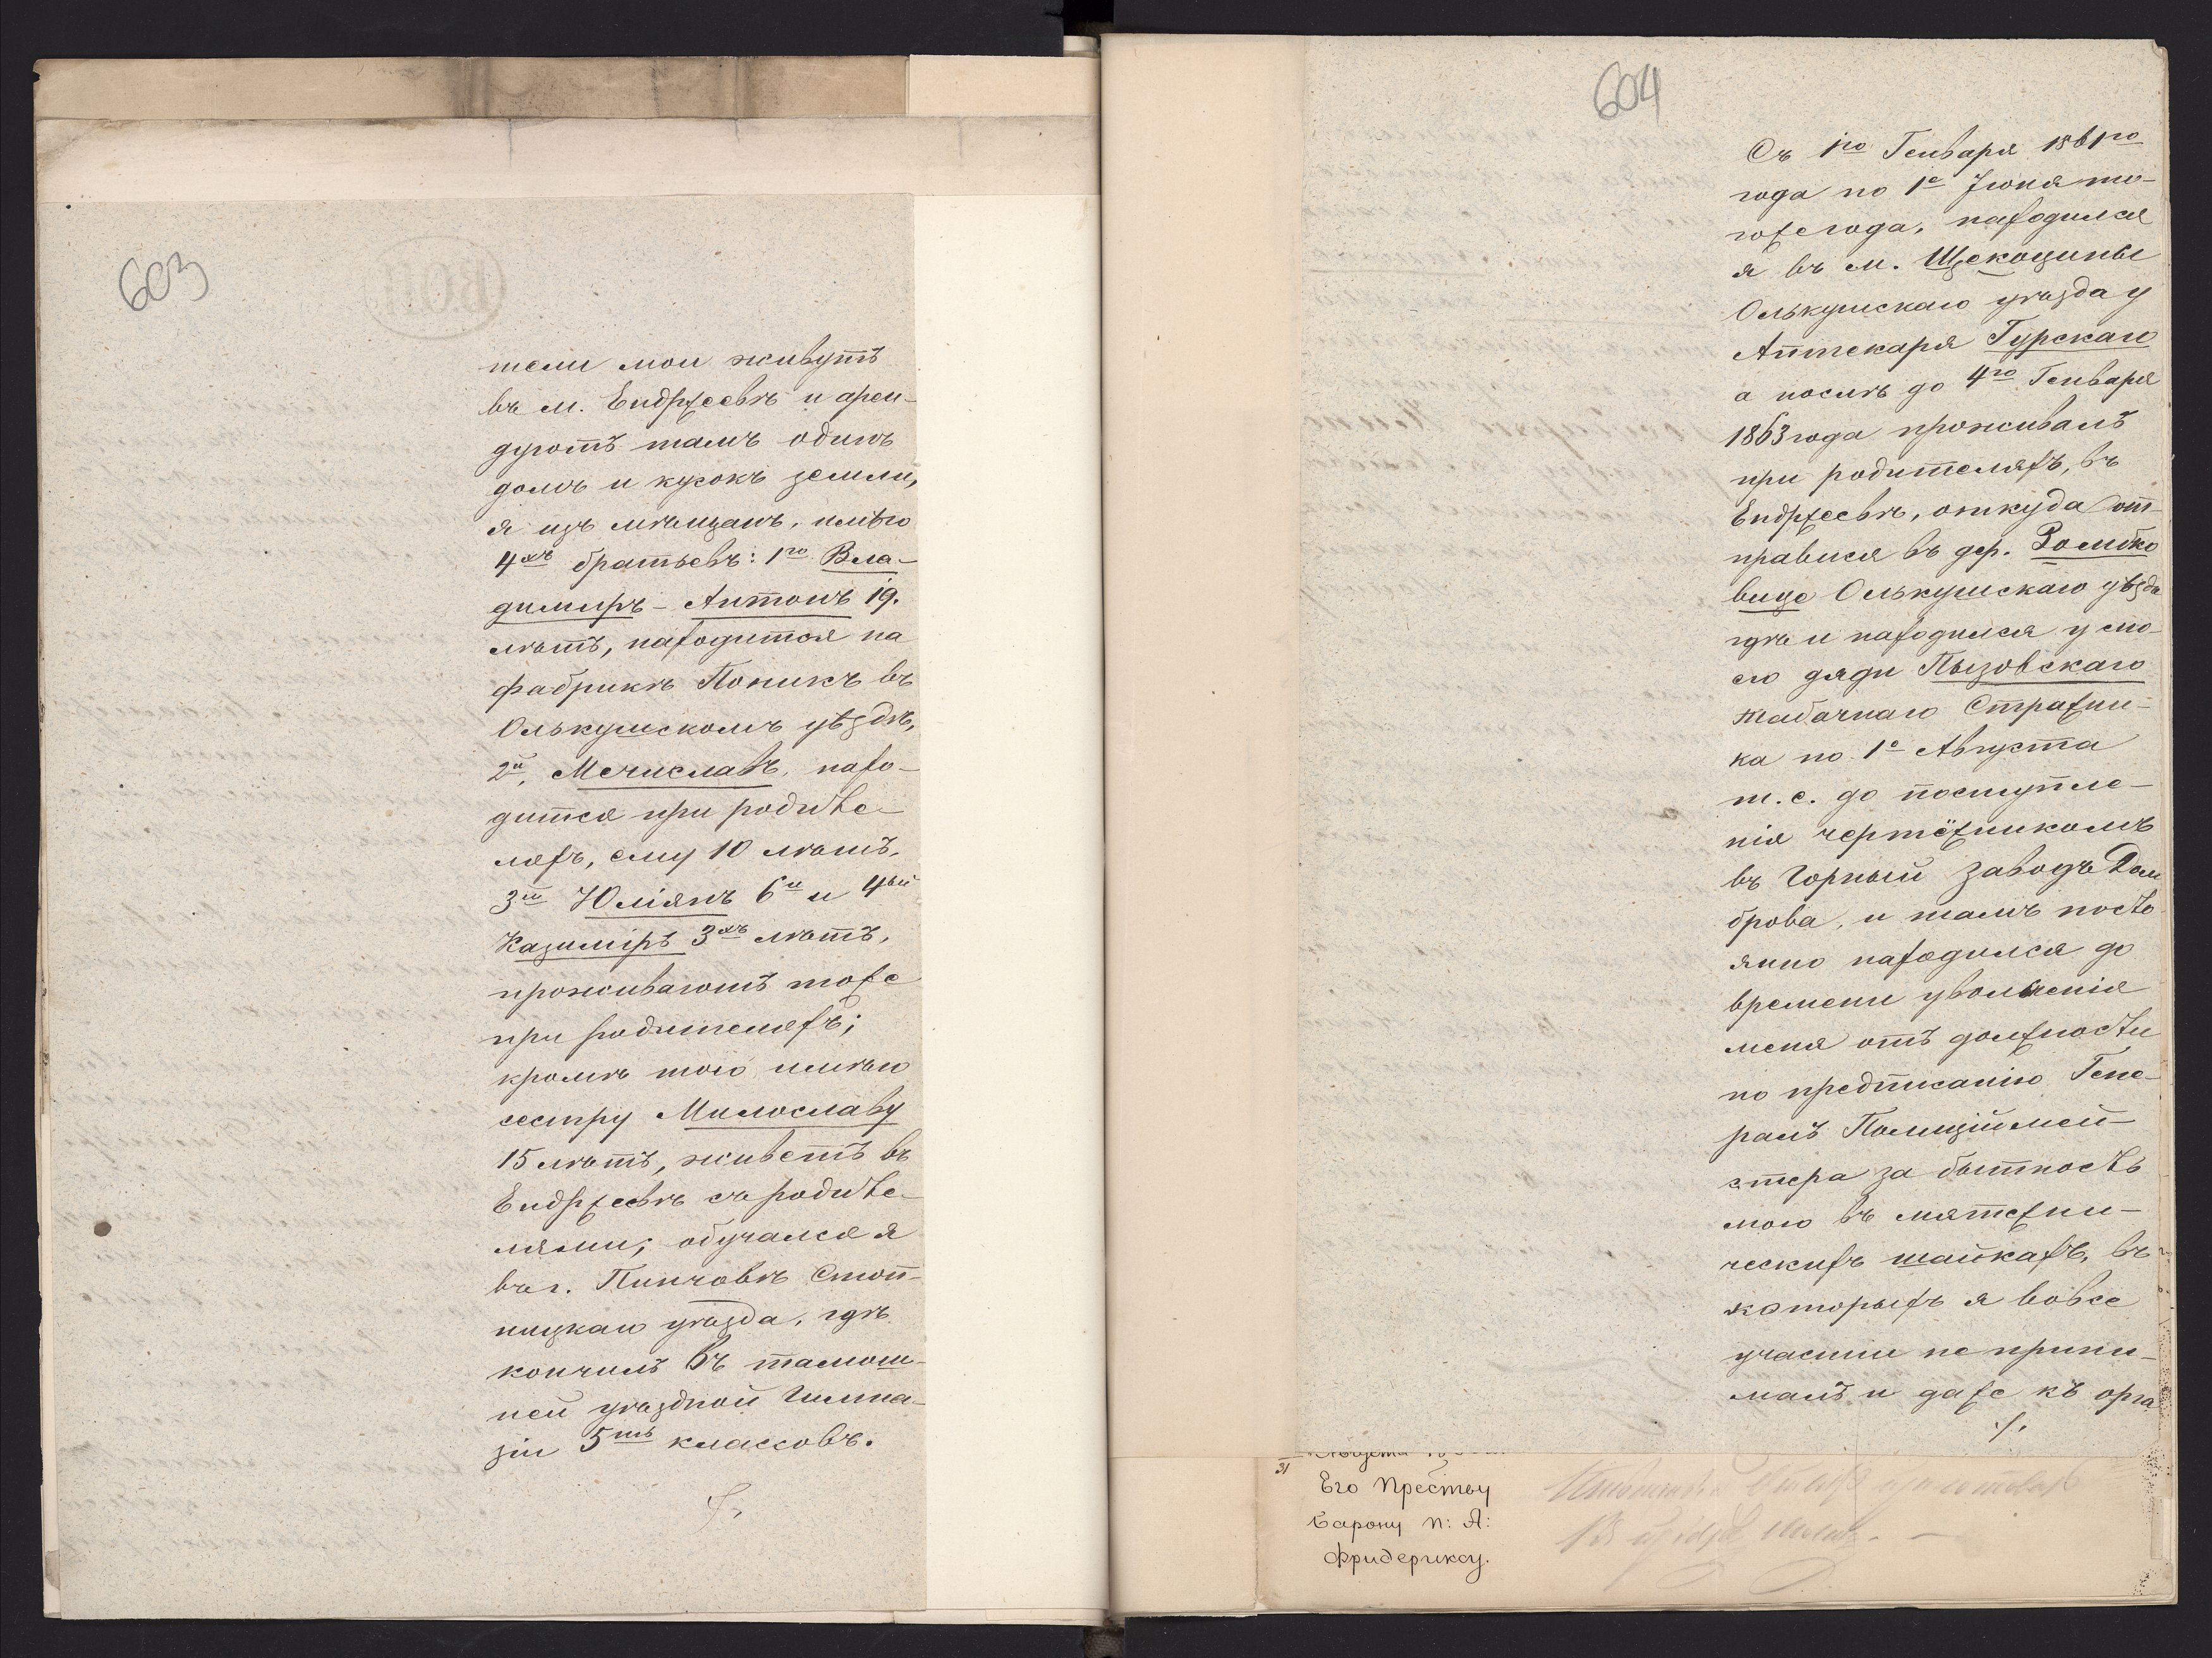 603
тели мои живутъ
въ м. Ендржеевѣ и арен-
дуютъ тамъ одинъ
домъ и кусокъ земли,
я изъ мѣщанъ, имѣю
4хъ братьевъ: 1го Вла-
димиръ-Антонъ 19.
лѣтъ, находится на
фабрикѣ Поникъ въ
Олькушскомъ уѣздѣ,
2й, Мечиславъ, нахо-
дится при родите-
ляхъ, ему 10 лѣтъ,
3й Юліянъ 6и и 4ый
Казиміръ 3хъ лѣтъ,
проживаютъ тоже
при родителяхъ;
кромѣ того имѣю
сестру Милославу
15 лѣтъ, живетъ въ
Ендржеевѣ съ родите-
лями; обучался я
въ г. Пинчовѣ Стоп-
ницкаго уѣзда, гдѣ
кончилъ въ тамош-
ней уѣздной Гимна-
зіи 5ть классовъ.
604
Съ 1го Генваря 1861го
года по 1е Іюня то-
гоже года, находился
я въ м. Щекоцины
Олькушскаго уѣзда у
Аптекаря Гурскаго
а послѣ до 4го Генваря
1863 года проживалъ
при родителяхъ, въ
Ендржеевѣ, откуда от-
правился въ дер.
вице Олькушскаго уѣзда
гдѣ и находился у мо-
его дяди Пызовскаго
табачнаго Стражни-
ка по 1е Августа
т. е. до поступле-
нія чертёжникомъ
въ Горный заводъ Дом
брова, и тамъ посто
янно находился до
времени увольненія
меня отъ должности
по предписанію Гене-
ралъ Полиціймей-
стера за бытность
мою въ мятежни-
ческихъ шайкахъ, въ
которыхъ я вовсе
участие не прини-
малъ и даже къ орга
31
Его Прєству
Барону П: А:
Фридериксу.